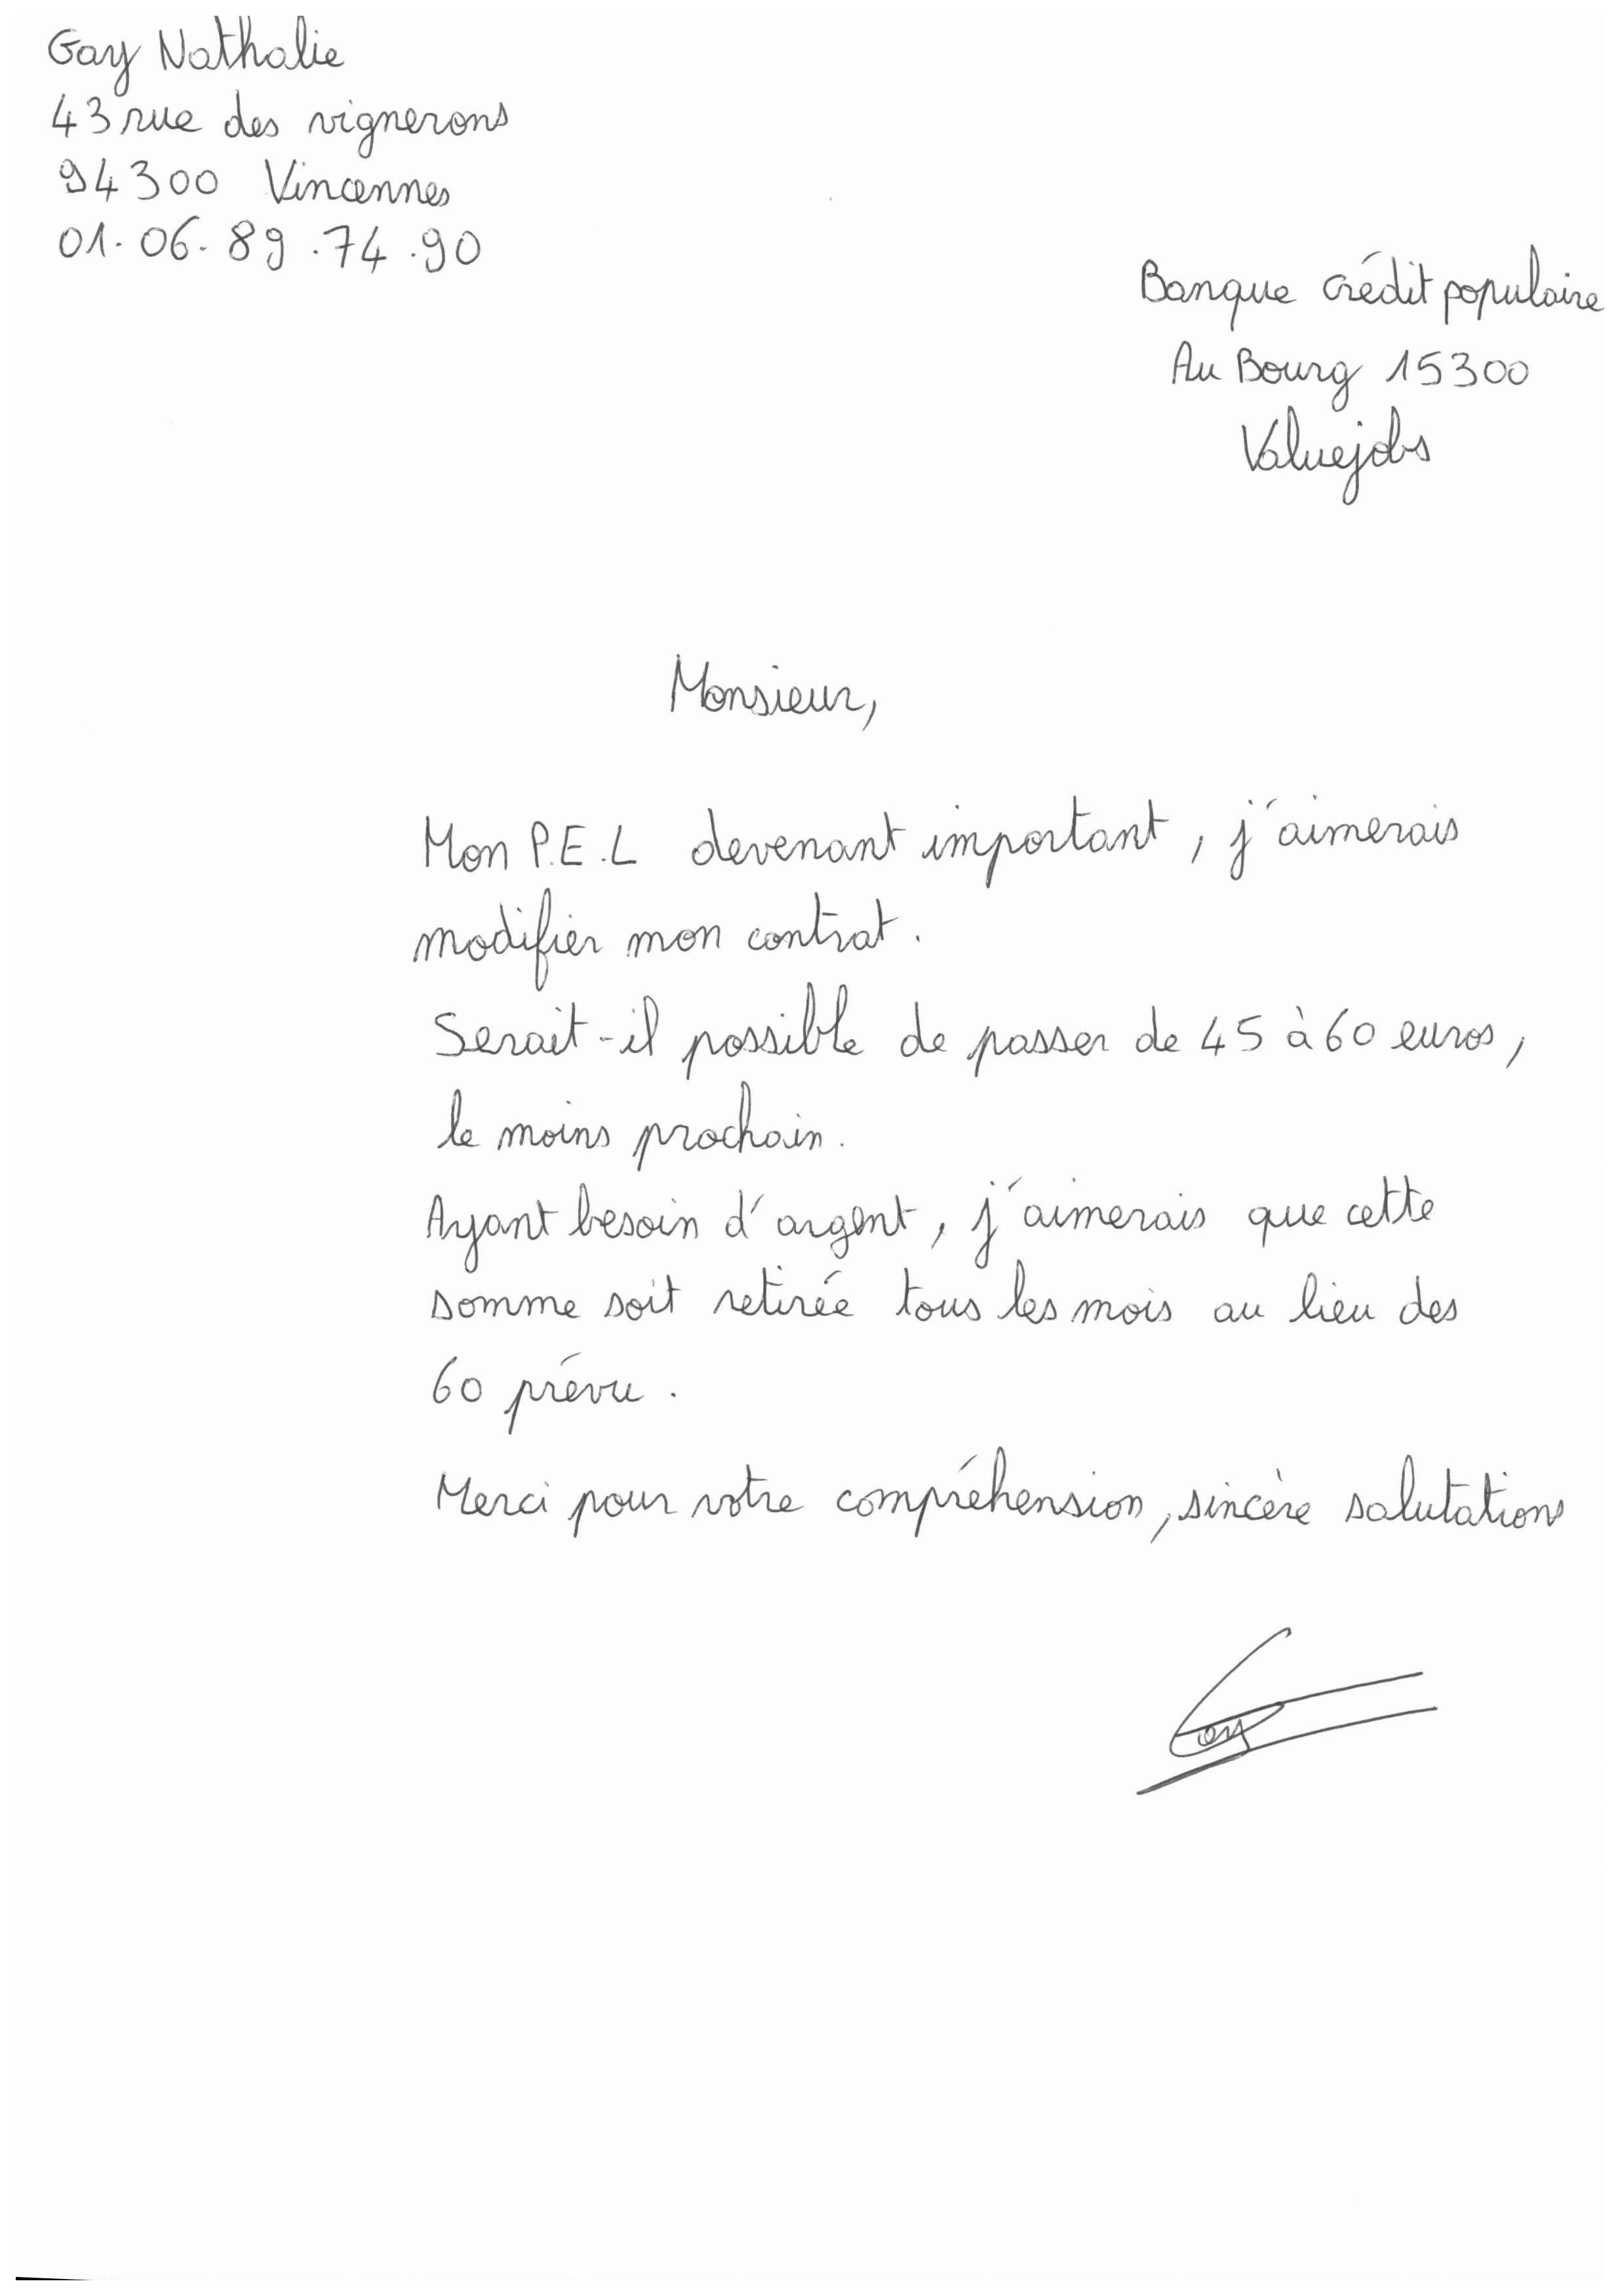 Gay Nathalie
43 rue des vignerons
94300 Vincennes
01.06.89.74.90
Banque crédit populaire
Au Bourg 15300
Valuejols
Monsieur,
Mon P.E.L devenant important, j'aimerais
modifier mon contrat.
Serait-il possible de passer de 45 à 60 euros,
le moins prochain.
Ayant besoin d'argent, j'aimerais que cette
somme soit retirée tous les mois au lieu des
60 prévu.
Merci pour votre compréhension, sincère salutations
Gay